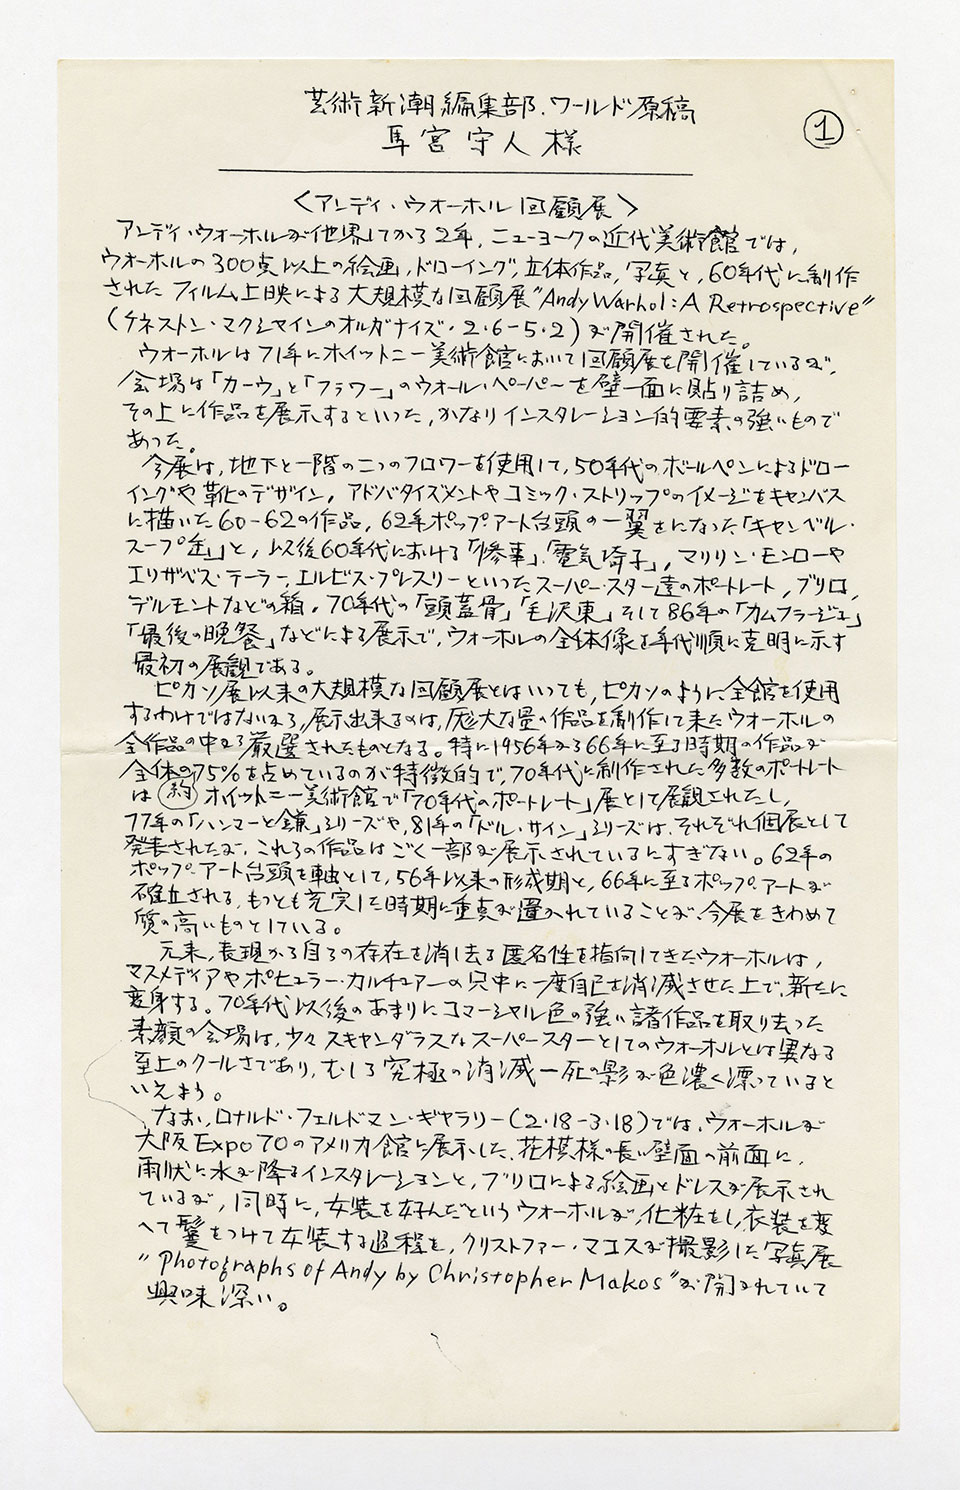 芸術新潮編集部.ワールド原稿
①
馬宮守人様
〈アンディ・ウォーホル回顧展〉
アンディ・ウォーホルが他界してから2年,ニューヨークの近代美術館では,
ウォーホルの300点以上の絵画,ドローイング,立体作品,写真と,60年代に制作
されたフィルム上映による大規模な回顧展"Andy Warhol: A Retrospective"
(ケネストン・マクシャインのオルガナイズ・2・6-5・2)が開催された。
ウォーホルは71年にホイットニー美術館において回顧展を開催しているが,
会場は「カーウ」と「フラワー」のウォール・ペーパーを壁一面に貼り詰め,
その上に作品を展示するといった,かなりインスタレーション的要素の強いもので
あった。
今展は,地下と一階の二つのフロワーを使用して,50年代のボールペンによるドロー
イングや靴のデザイン,アドバタイズメントやコミック・ストリップのイメージをキャンバス
に描いた60-62の作品,62年ポップ・アート台頭の一翼をになった「キャンベル・
スープ缶」と,以後60年代における「惨事」,「電気椅子」,マリリン・モンローや
エリザベス・テーラー,エルビス・プレスリーといったスーパー・スター達のポートレート,ブリロ,
デルモントなどの箱,70年代の「頭蓋骨」「毛沢東」そして86年の「カムフラージュ」
「最後の晩餐」などによる展示で,ウォーホルの全体像を年代順に克明に示す
最初の展観である。
ピカソ展以来の大規模な回顧展とはいっても,ピカソのように全館を使用
するわけではないから,展示出来るのは,厖大な量の作品を制作して来たウォーホルの
全作品の中から厳選されたものとなる。特に1956年から66年に至る時期の作品が
全体の約75%を占めているのが特徴的で,70年代に制作された多数のポートレート
は ホイットニー美術館で「70年代のポートレート」展として展観されたし,
77年の「ハンマーと鎌」シリーズや,81年の「ドル・サイン」シリーズは,それぞれ個展として
発表されたが,これらの作品はごく一部が展示されているにすぎない。62年の
ポップ・アート台頭を軸として,56年以来の形成期と,66年に至るポップ・アートが
確立される,もっとも充実した時期に重点が置かれていることが,今展をきわめて
質の高いものとしている。
元来,表現から自らの存在を消し去る匿名性を指向してきたウォーホルは,
マスメディアやポピュラー・カルチュアーの只中に一度自己を消滅させた上で,新たに
変身する。70年代以後のあまりにコマーシャル色の強い諸作品を取り去った
素顔の会場は,少々スキャンダラスなスーパースターとしてのウォーホルとは異なる
至上のクールさであり,むしろ究極の消滅―死の影が色濃く漂っていると
いえよう。
なお,ロナルド・フェルドマン・ギャラリー(2・18-3・18)では,ウォーホルが
大阪Expo 70のアメリカ館に展示した,花模様の長い壁面の前面に,
雨状に水が降るインスタレーションと,ブリロによる絵画とドレスが展示され
ているが,同時に,女装を好んだというウォーホルが,化粧をし,衣装を変
へて鬘をつけて女装する過程を,クリストファー・マコスが撮影した写真展
"Photographs of Andy by Christopher Makos"が開されていて
興味深い。